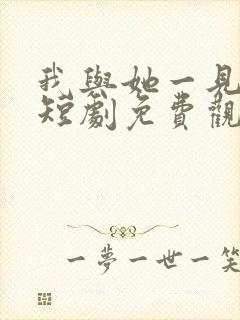 我與她一見
短劇免費觀
一夢一世一笑